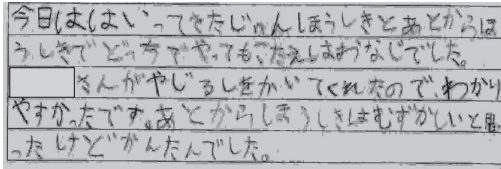 今日は、はいってきたじゅんほうしきとあとからほ
うしきでどっちでやってもこたえはおなじでした。
さんがやじるしをかいてくれたので、わかり
やすかったです。あとからほうしきはむずかしいと思
ったけどかんたんでした。